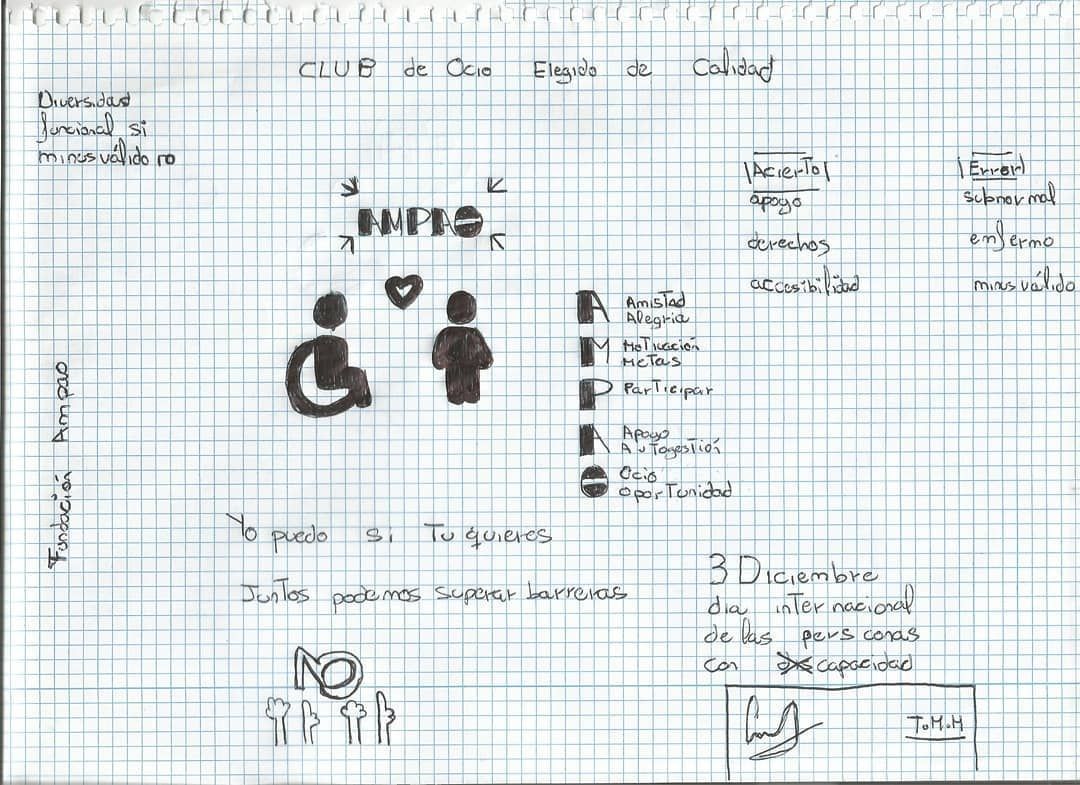 CLUB de Ocio Elegido de Calidad
Diversidad
funcional si
minusválido no
¡Acierto!
apoyo
derechos
accesibilidad
¡Error!
subnormal
enfermo
minusválido
AMPAO
A Amistad
Alegria
M Motivación
Metas
P Participar
A Apoyo
Autogestión
O Ocio
oportunidad
Fundación Ampao
Yo puedo si Tu quieres
Juntos podemos superar barreras
NO
3 Diciembre
dia internacional
de las pers conas
con capacidad
T.M.M